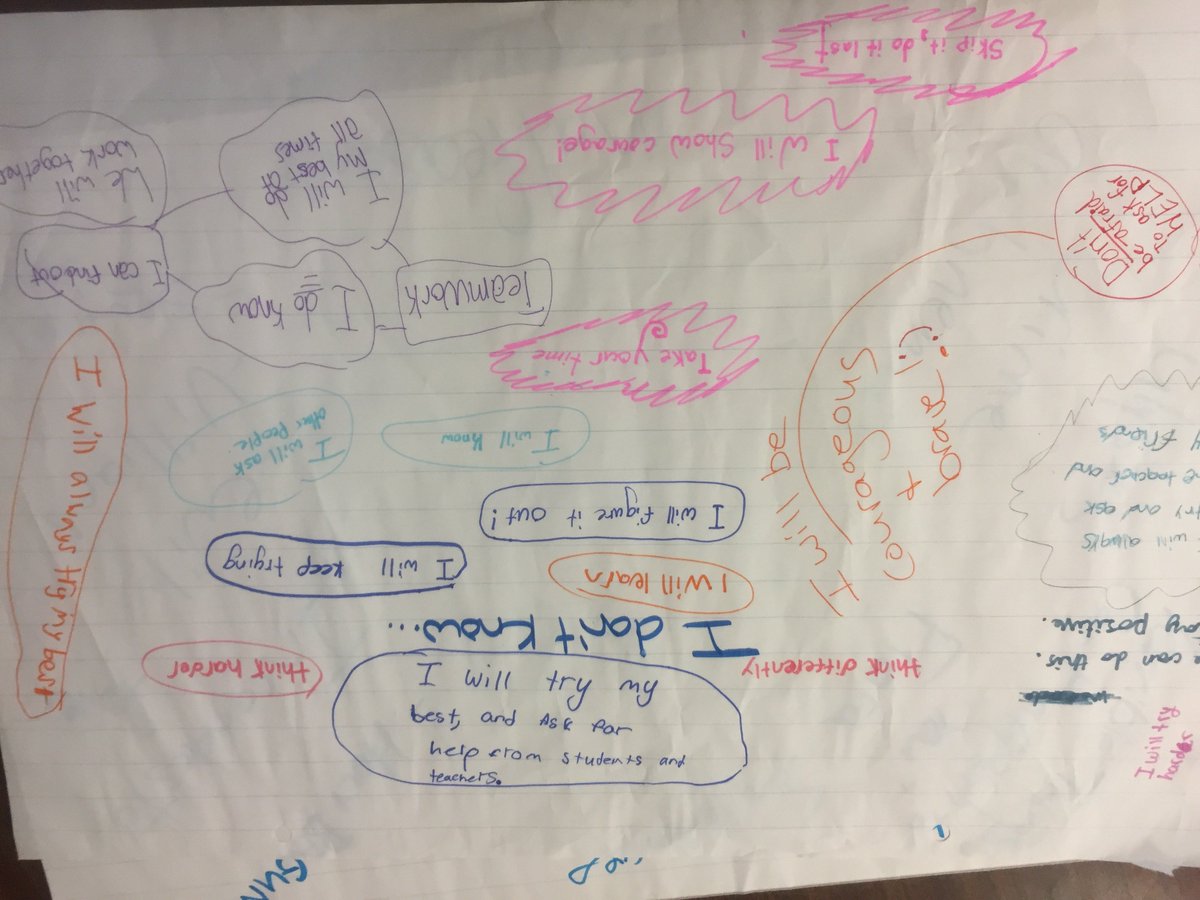 I don't know...
I will try my
best, and Ask for
help from students and
teachers.
think harder
think differently
I will learn
I will keep trying
I will figure it out!
I will know
I will ask
other people.
Take your time
I will be
courageous
+
brave! :)
Don't
be afraid
To ask for
HELP
I will show courage!
Skip it, do it last!
Teamwork
I do know
I will do
My best at
all times
I can find out
We will
work together
I will always try my best
will always
try and ask
teacher and
friends
can do this.
positive.
I will try
harder